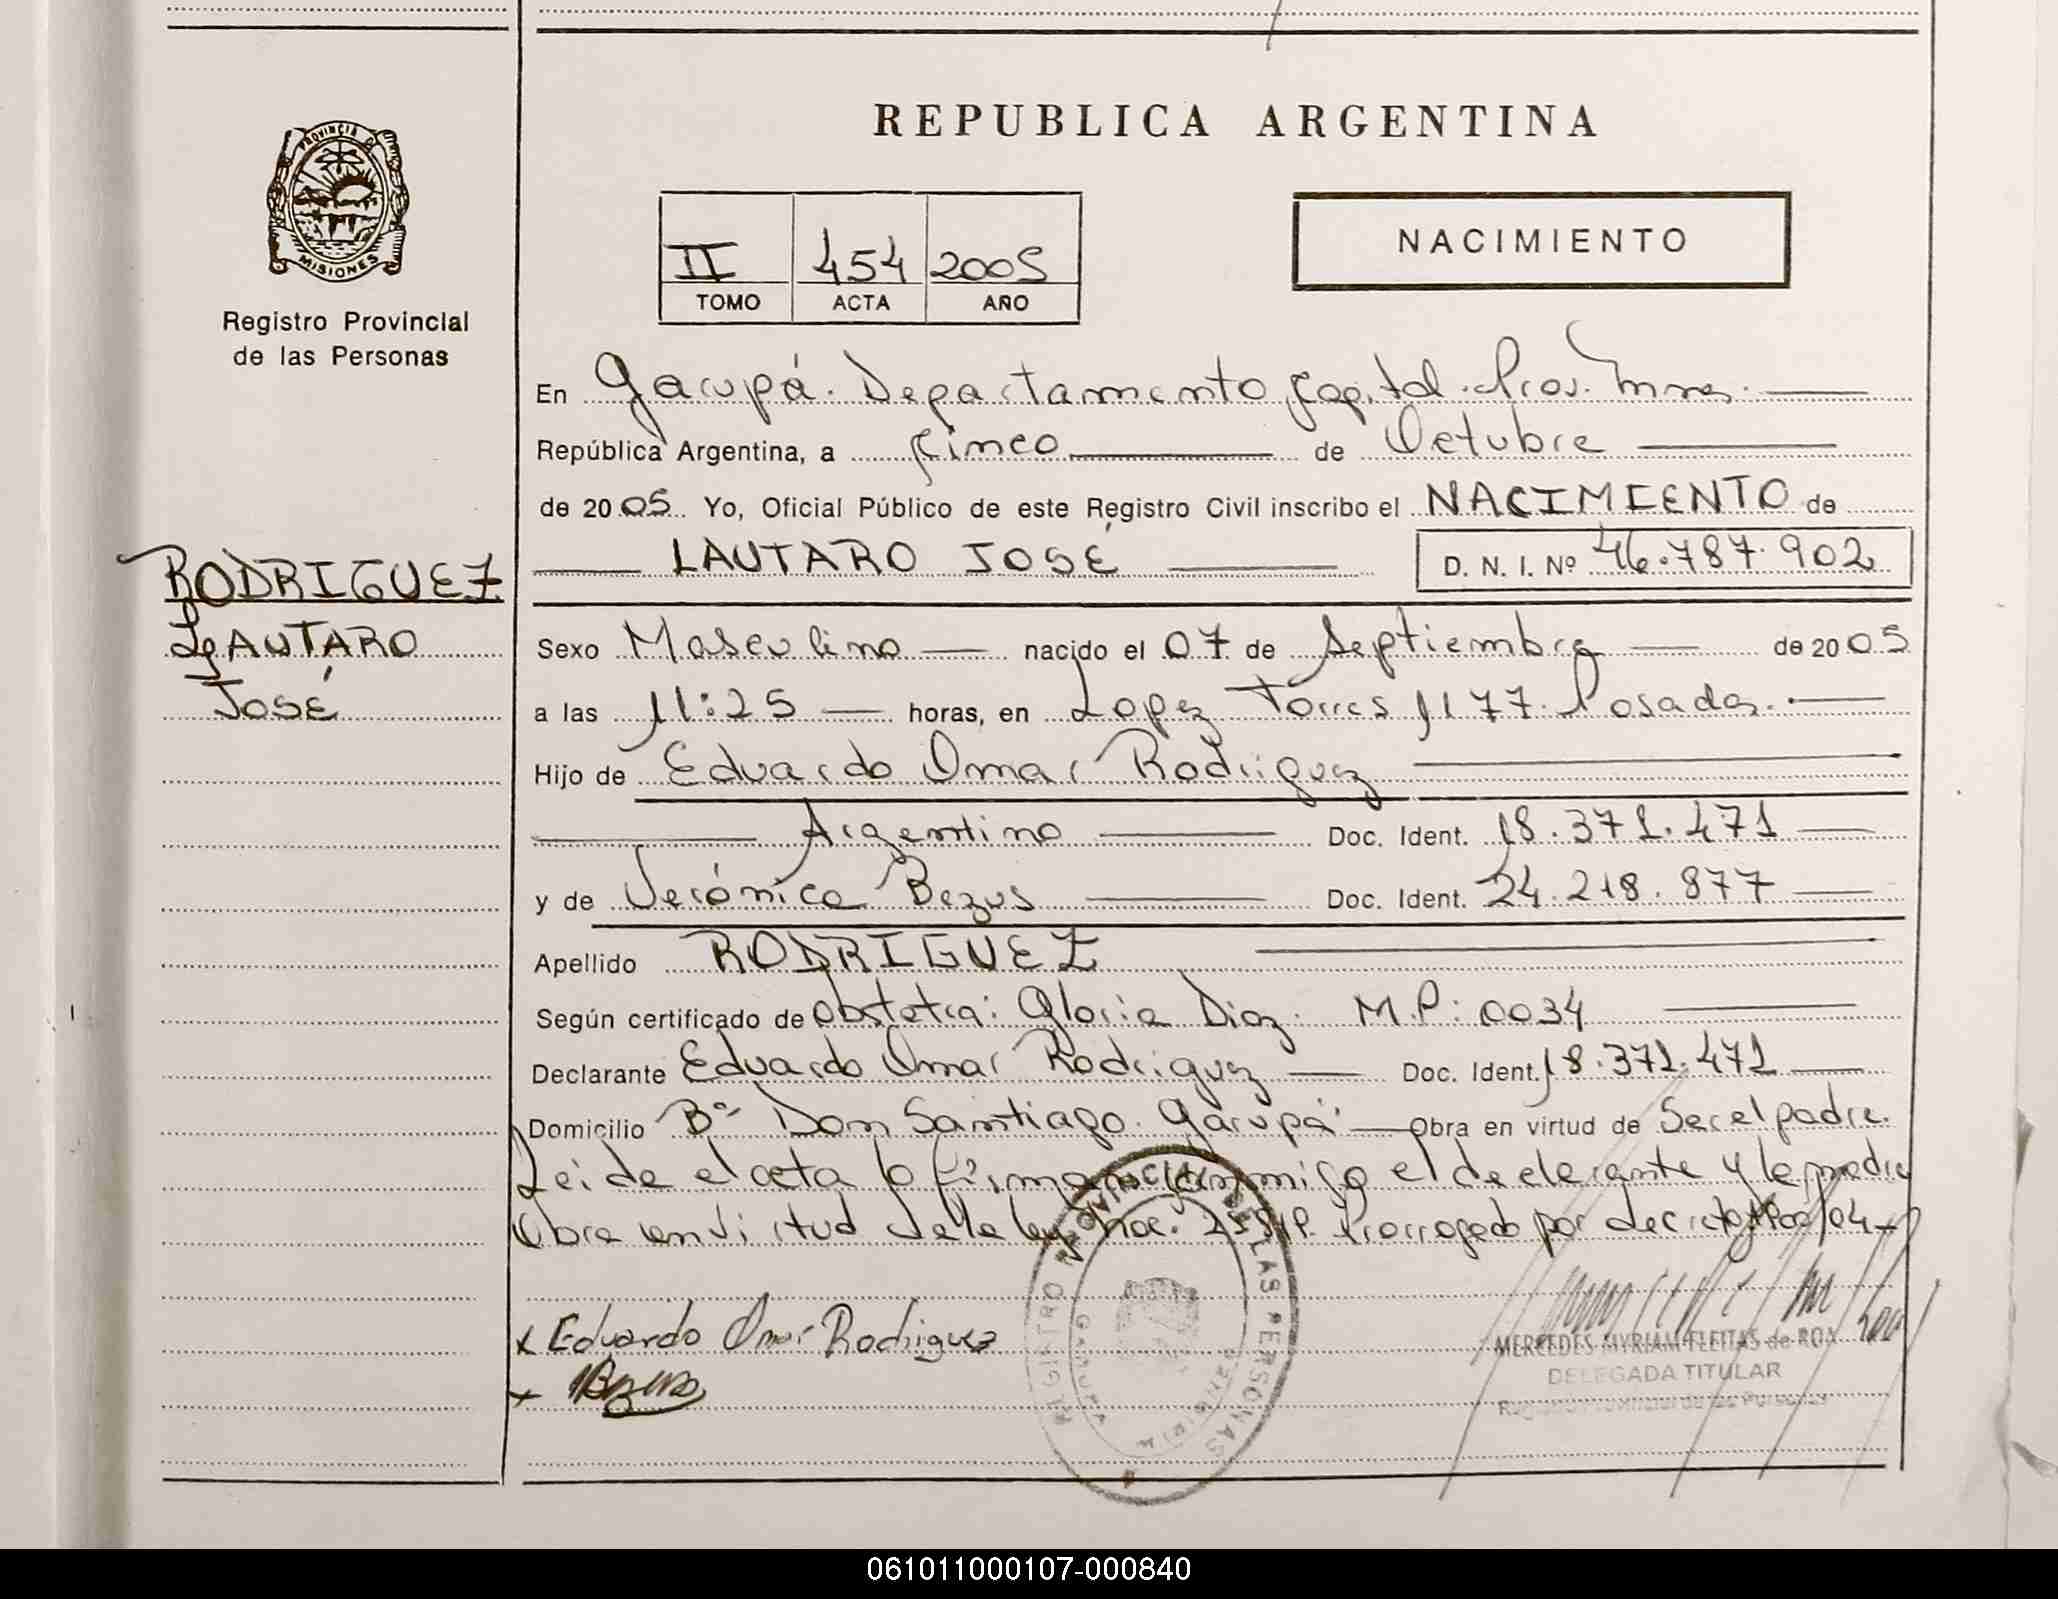 REPUBLICA ARGENTINA
PROVINCIA DE
MISIONES
Registro Provincial
de las Personas
II 454 2005
TOMO ACTA AÑO
NACIMIENTO
En Garupá. Departamento Capital. Prov. Mnes.
República Argentina, a Cinco de Octubre
de 2005 Yo, Oficial Público de este Registro Civil inscribo el NACIMIENTO de
LAUTARO JOSÉ D. N. I. Nº 46.787.902
RODRIGUEZ
LAUTARO
JOSÉ
Sexo Masculino nacido el 07 de Septiembre de 2005
a las 11:25 horas, en Lopez Torres 1177. Posadas.
Hijo de Eduardo Omar Rodriguez
Argentino Doc. Ident. 18.371.471
y de Verónica Bezus Doc. Ident. 24.218.877
Apellido RODRIGUEZ
Según certificado de obstetra: Gloria Diaz. M.P: 0034
Declarante Eduardo Omar Rodriguez Doc. Ident. 18.371.471
Domicilio Bº Don Santiago. Garupá Obra en virtud de Ser el padre.
Leida el acta la firman conmigo el declarante y la madre
Obra en virtud de la ley Prorrogado por decreto /04
x Eduardo Omar Rodriguez
x
REGISTRO PROVINCIAL DE LAS PERSONAS
GARUPA
MERCEDES MYRIAM FLEITAS de ROA
DELEGADA TITULAR
Registro Provincial de las Personas
061011000107-000840